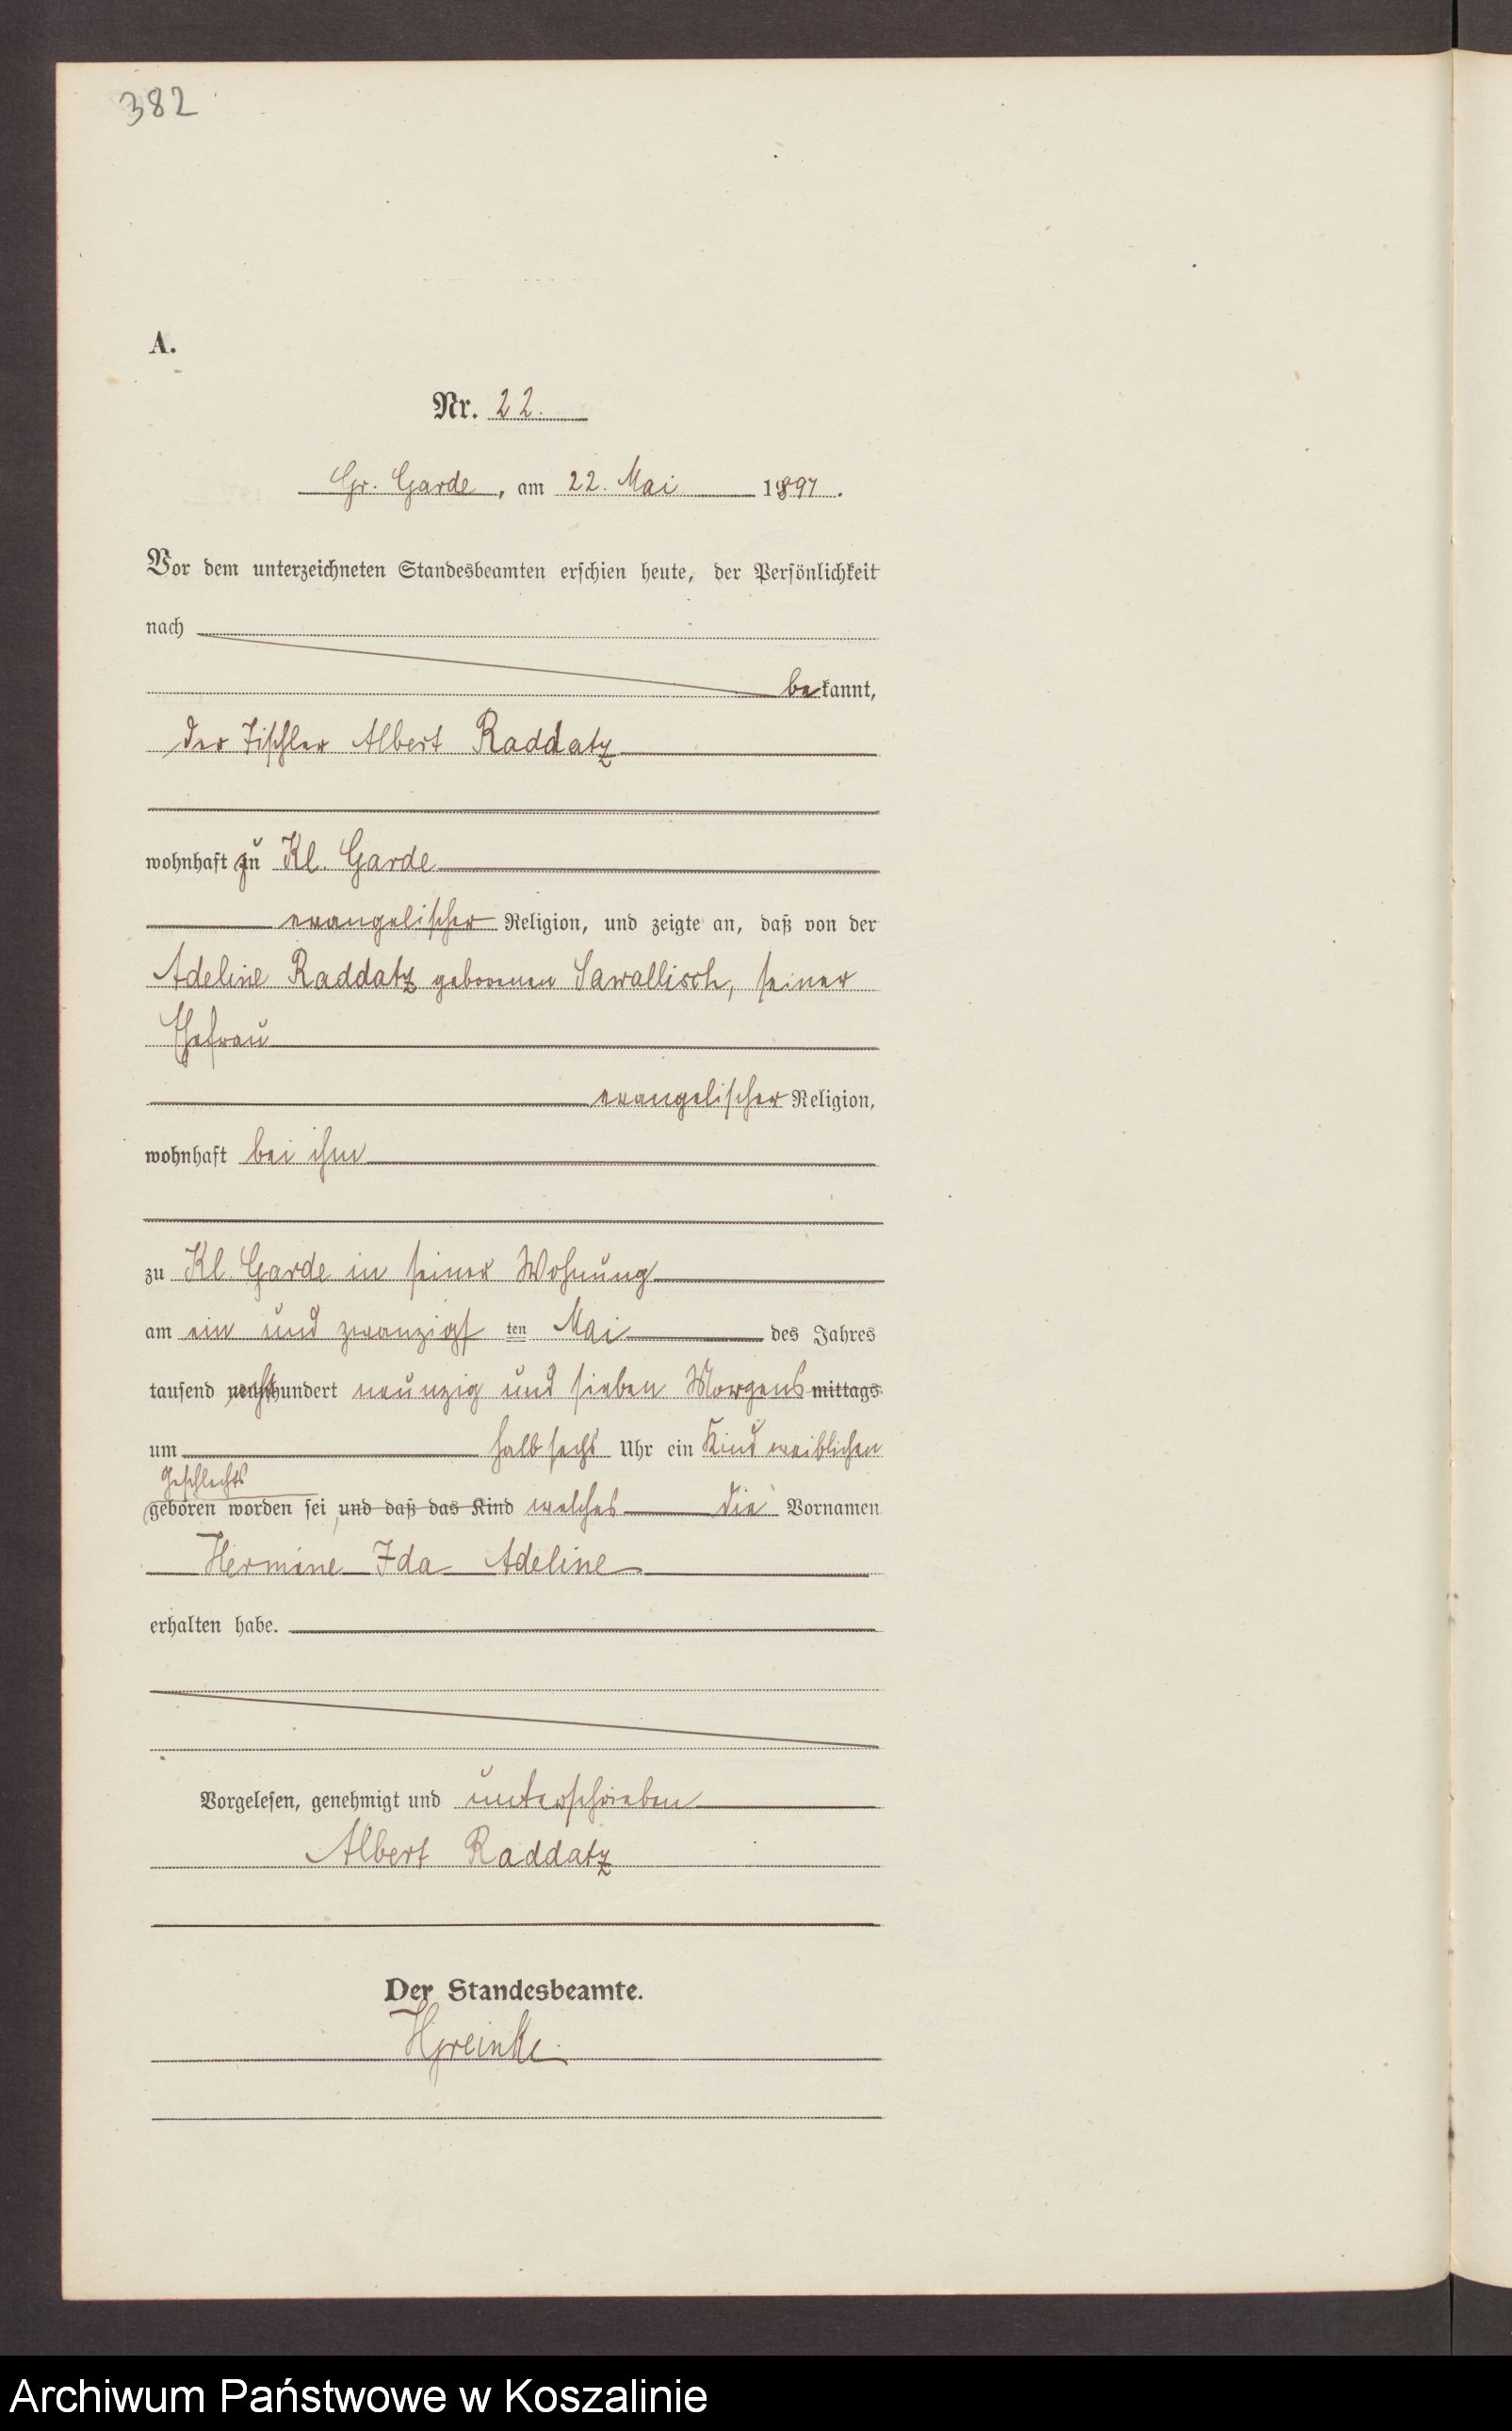 382
A.
Nr. 22.
Gr. Garde, am 22. Mai 1897.
Vor dem unterzeichneten Standesbeamten erschien heute, der Persönlichkeit
nach
bekannt,
der Tischler Albert Raddatz
wohnhaft zu Kl. Garde
evangelischer Religion, und zeigte an, daß von der
Adeline Raddatz geborenen Sawallisch, seiner
Ehefrau
evangelischer Religion,
wohnhaft bei ihm
zu Kl. Garde in seiner Wohnung
am ein und zwanzigst ten Mai des Jahres
tausend achthundert neunzig und sieben Morgens mittags
um halb sechs Uhr ein Kind weiblichen
Geschlechts
geboren worden sei, und daß das Kind welches die Vornamen
Hermine Ida Adeline
erhalten habe.
Vorgelesen, genehmigt und unterschrieben
Albert Raddatz
Der Standesbeamte.
Archiwum Państwowe w Koszalinie